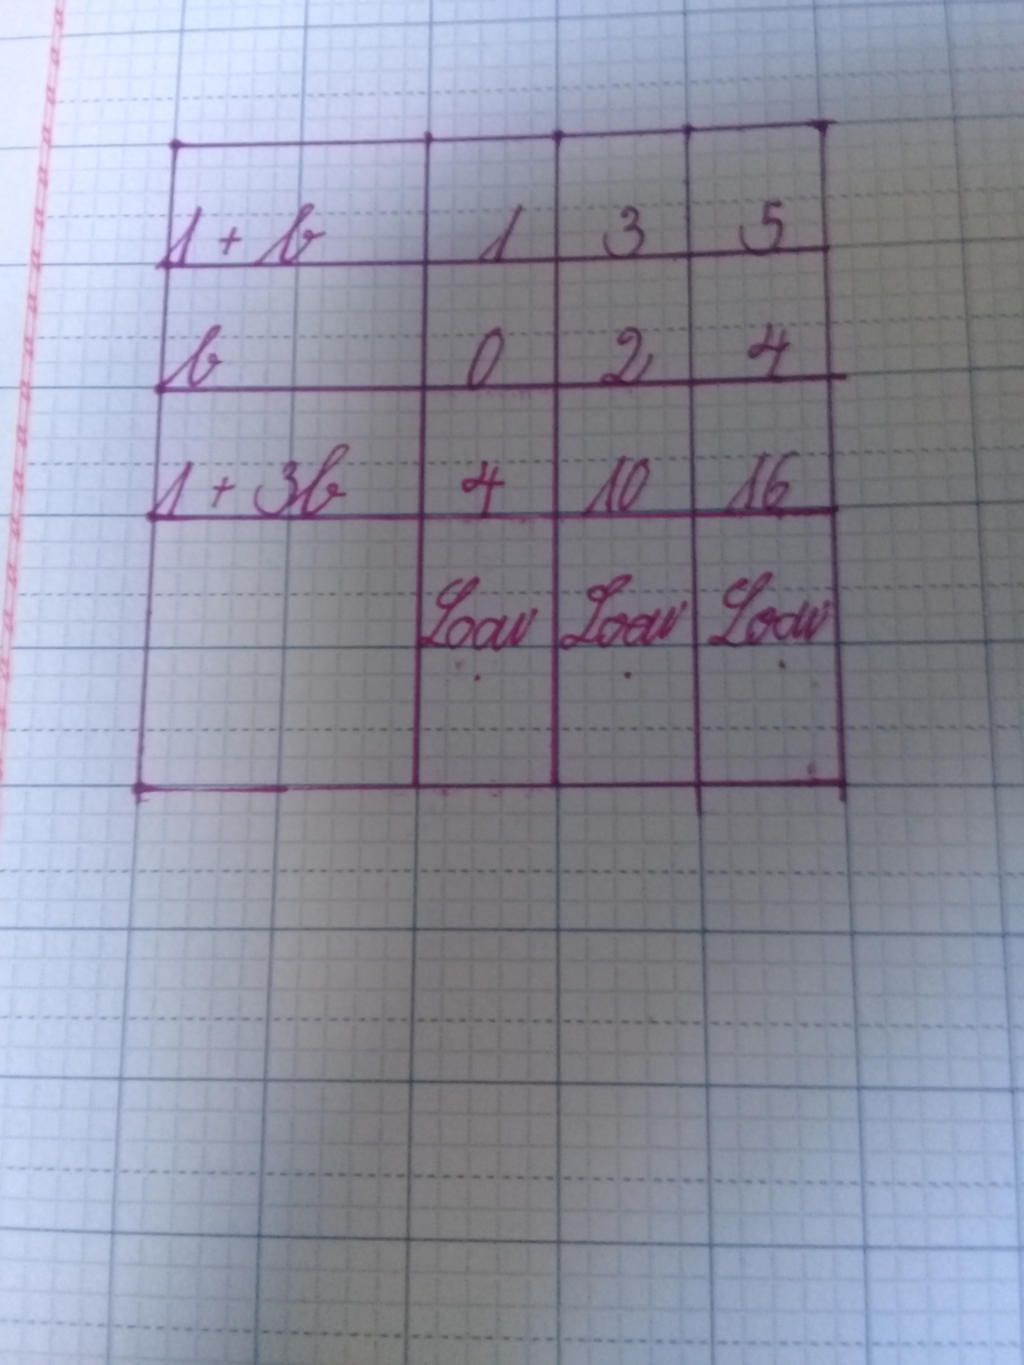 1 + b 1 3 5
b 0 2 4
1 + 3b 4 10 16
Loại Loại Loại